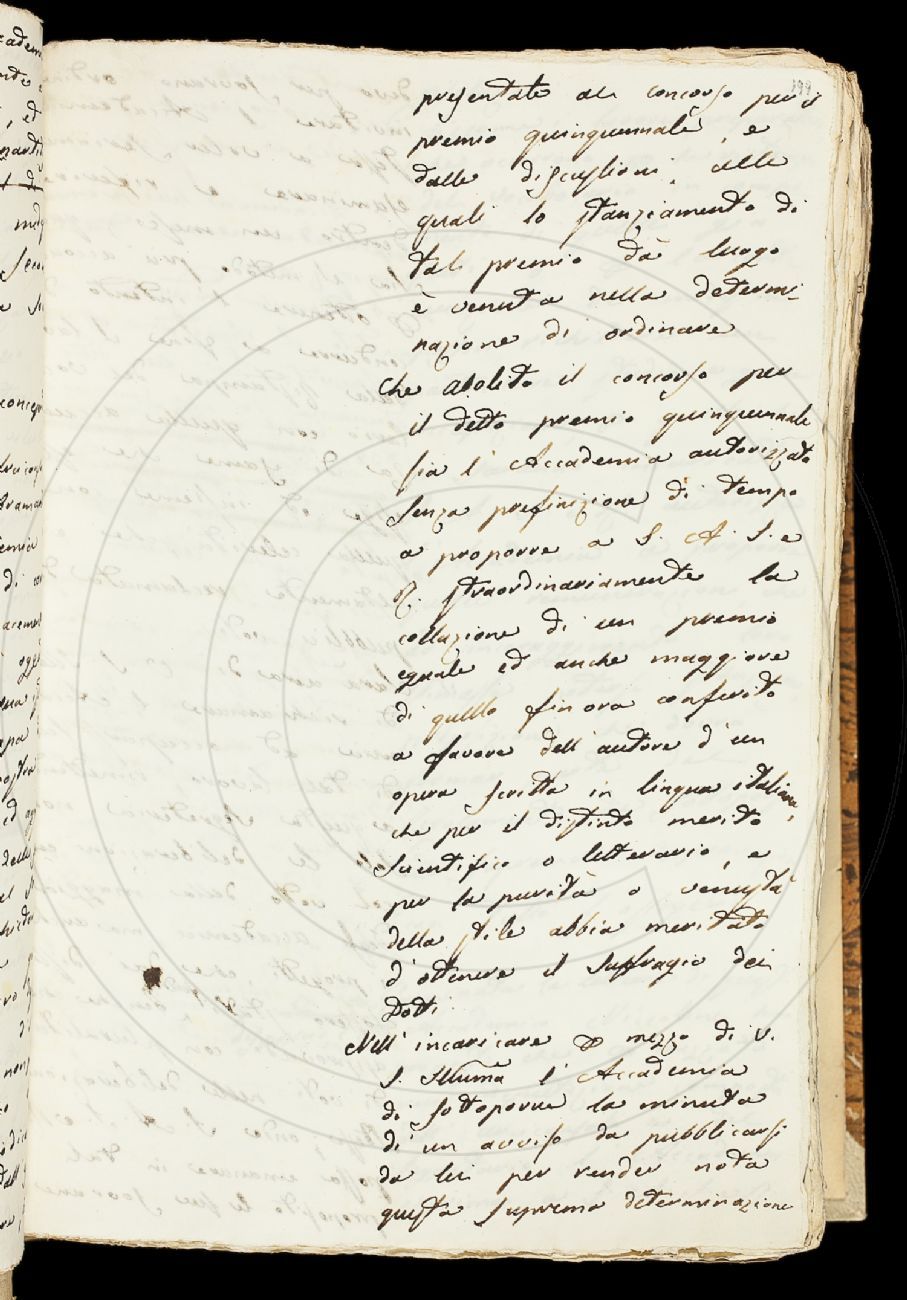 199
presentate al concorso per il
premio quinquennale, e
dalle discussioni, alle
quali lo stanziamento di
tal premio dà luogo
è venuta nella determi-
nazione di ordinare
Che abolito il concorso per
il detto premio quinquennale
sia l'Accademia autorizzata
senza prefinizione di tempo
a proporre a S. A. I. e
R. straordinariamente la
collazione di un premio
eguale ed anche maggiore
di quello fin ora conferito
a favore dell'autore d'un
opera scritta in lingua italiana,
che per il distinto merito
scientifico o letterario, e
per la purità o venustà
dello stile abbia meritato
d'ottenere il suffragio dei
Dotti.
Nell'incaricare mezzo di V.
S. Illuma l'Accademia
di sottoporre la minuta
di un avviso da pubblicarsi
da lei per render nota
questa suprema determinazione